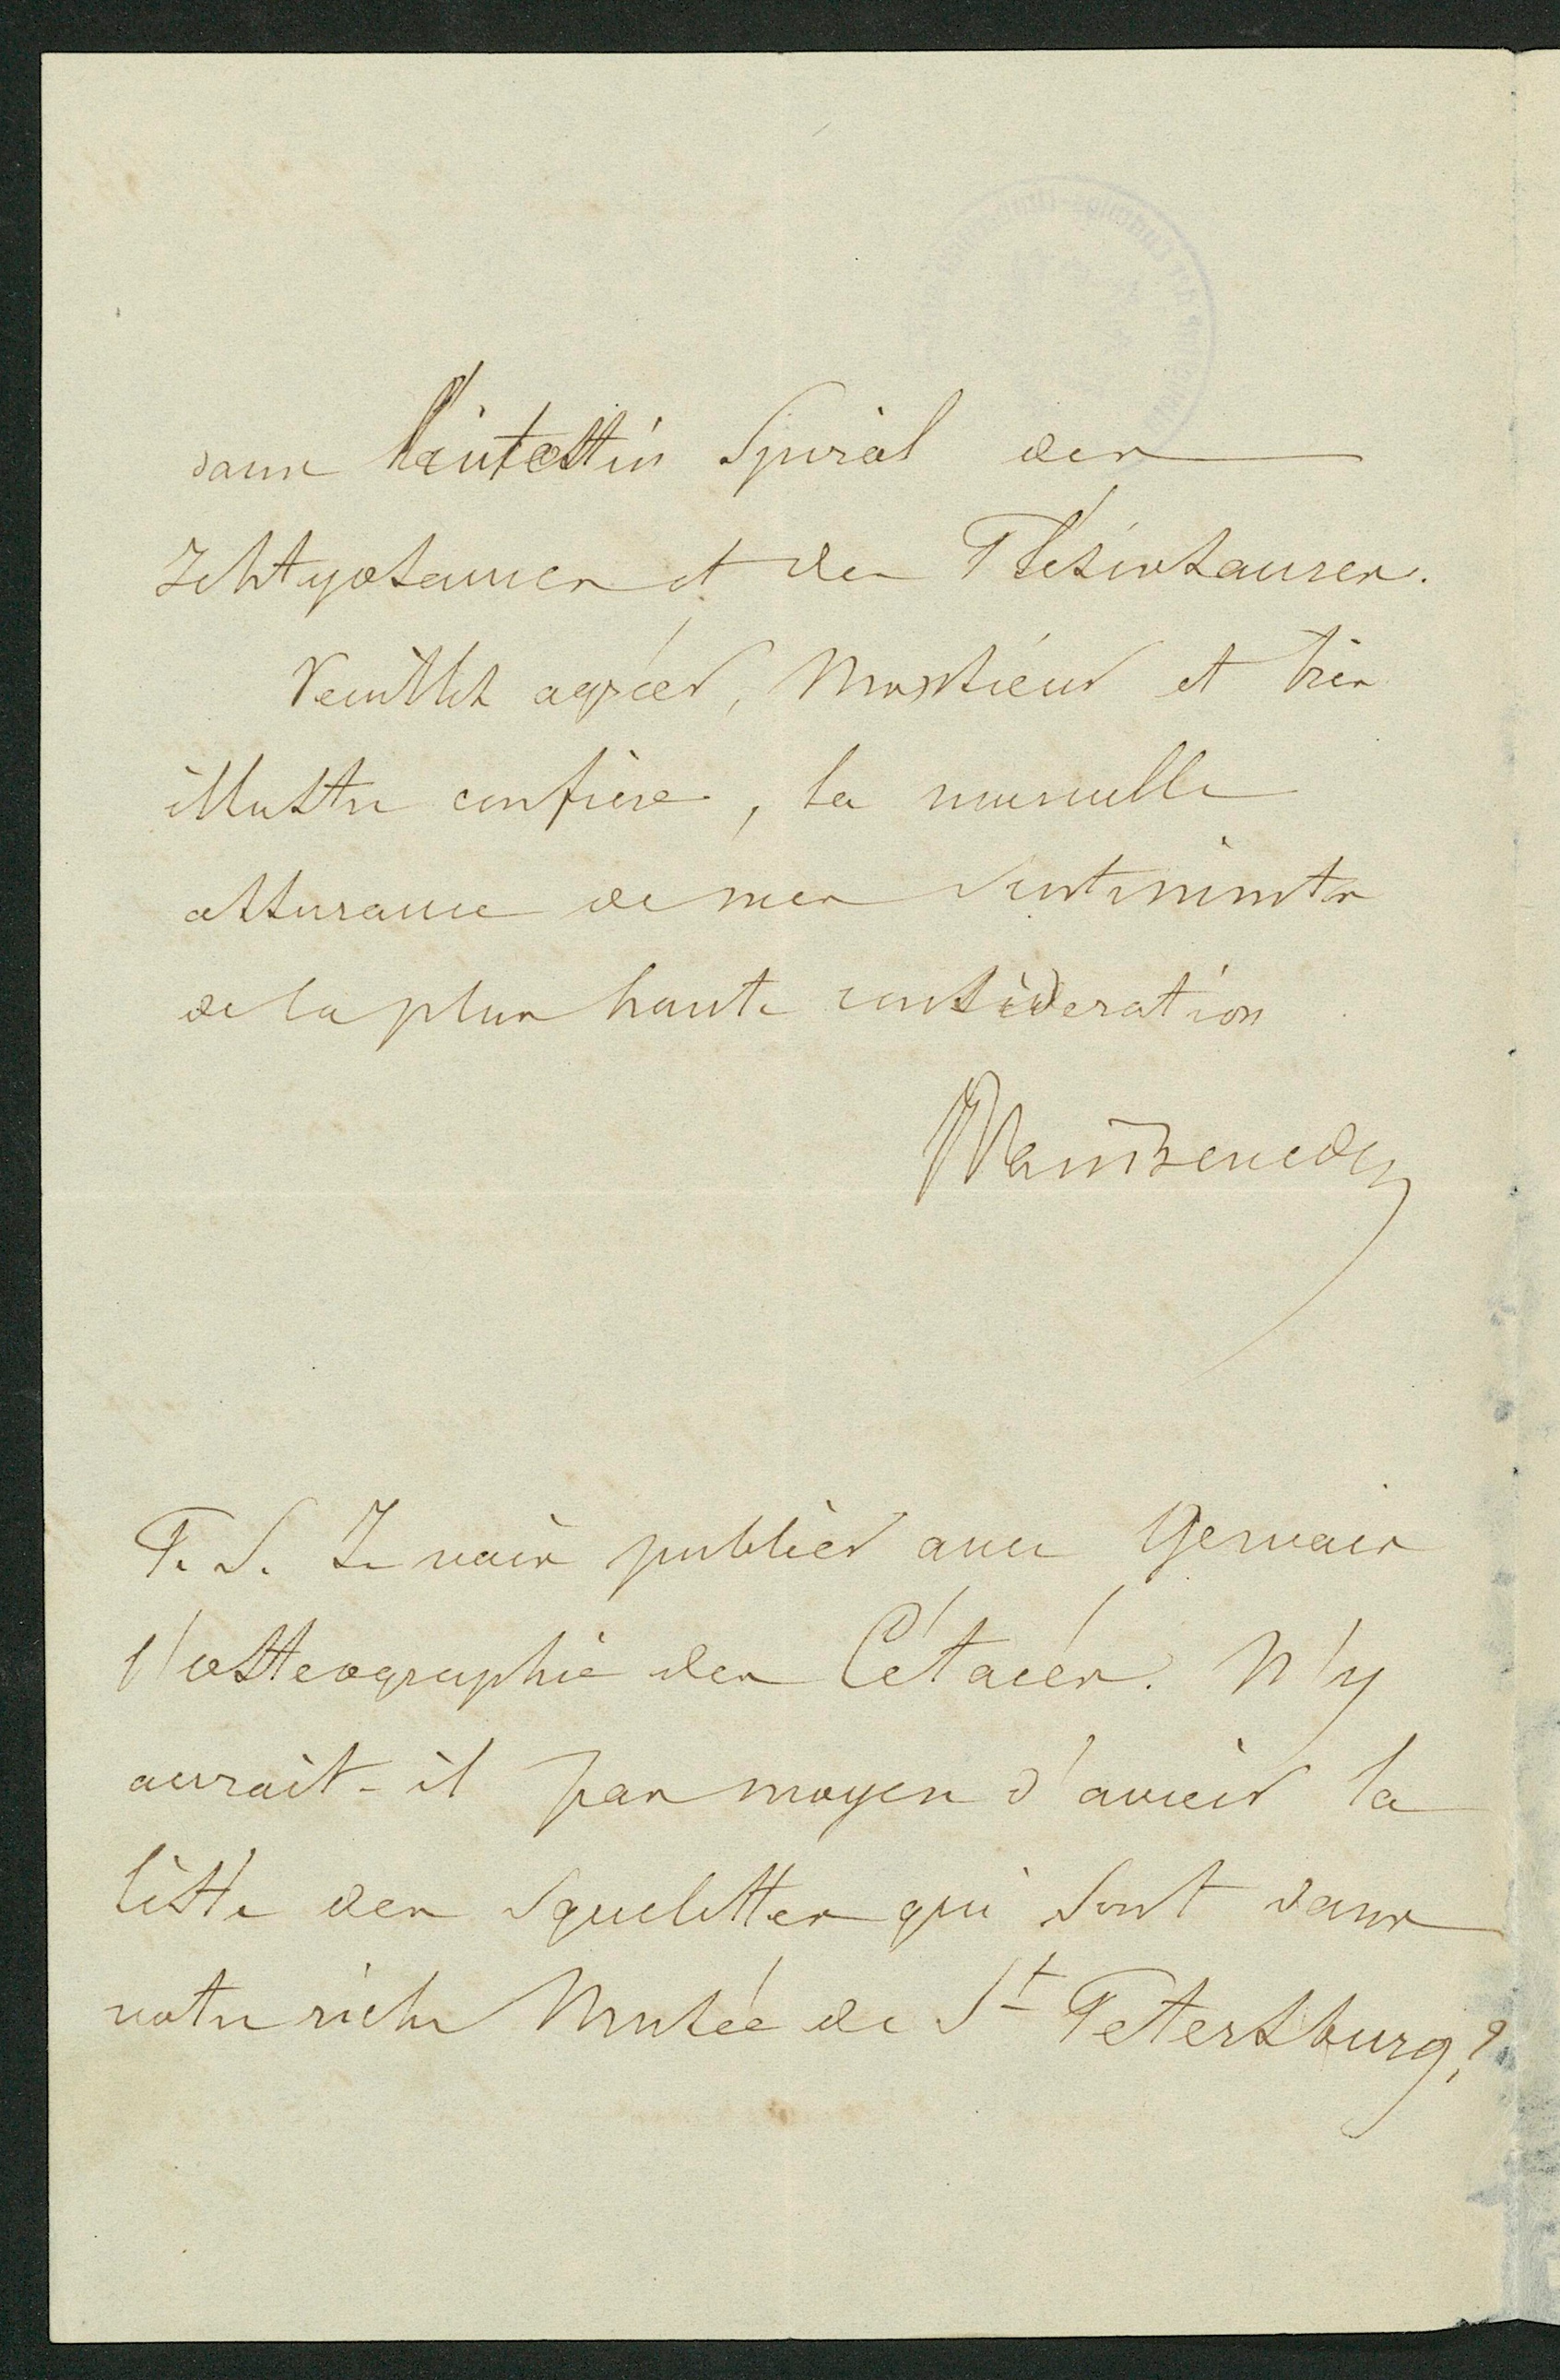 dans l'intestin spiral des
Ichtyosaures et des Plésiosaures.
Veuillez agréer, Monsieur et très
illustre confrère, la nouvelle
assurance de mes sentiments
de la plus haute considération
VanBeneden
P. S. Je vais publier avec Gervais
l'osteographie des Cétacés. N'y
aurait-il pas moyen d'avoir la
liste des squelettes qui sont dans
votre riche Musée de St Petersburg?